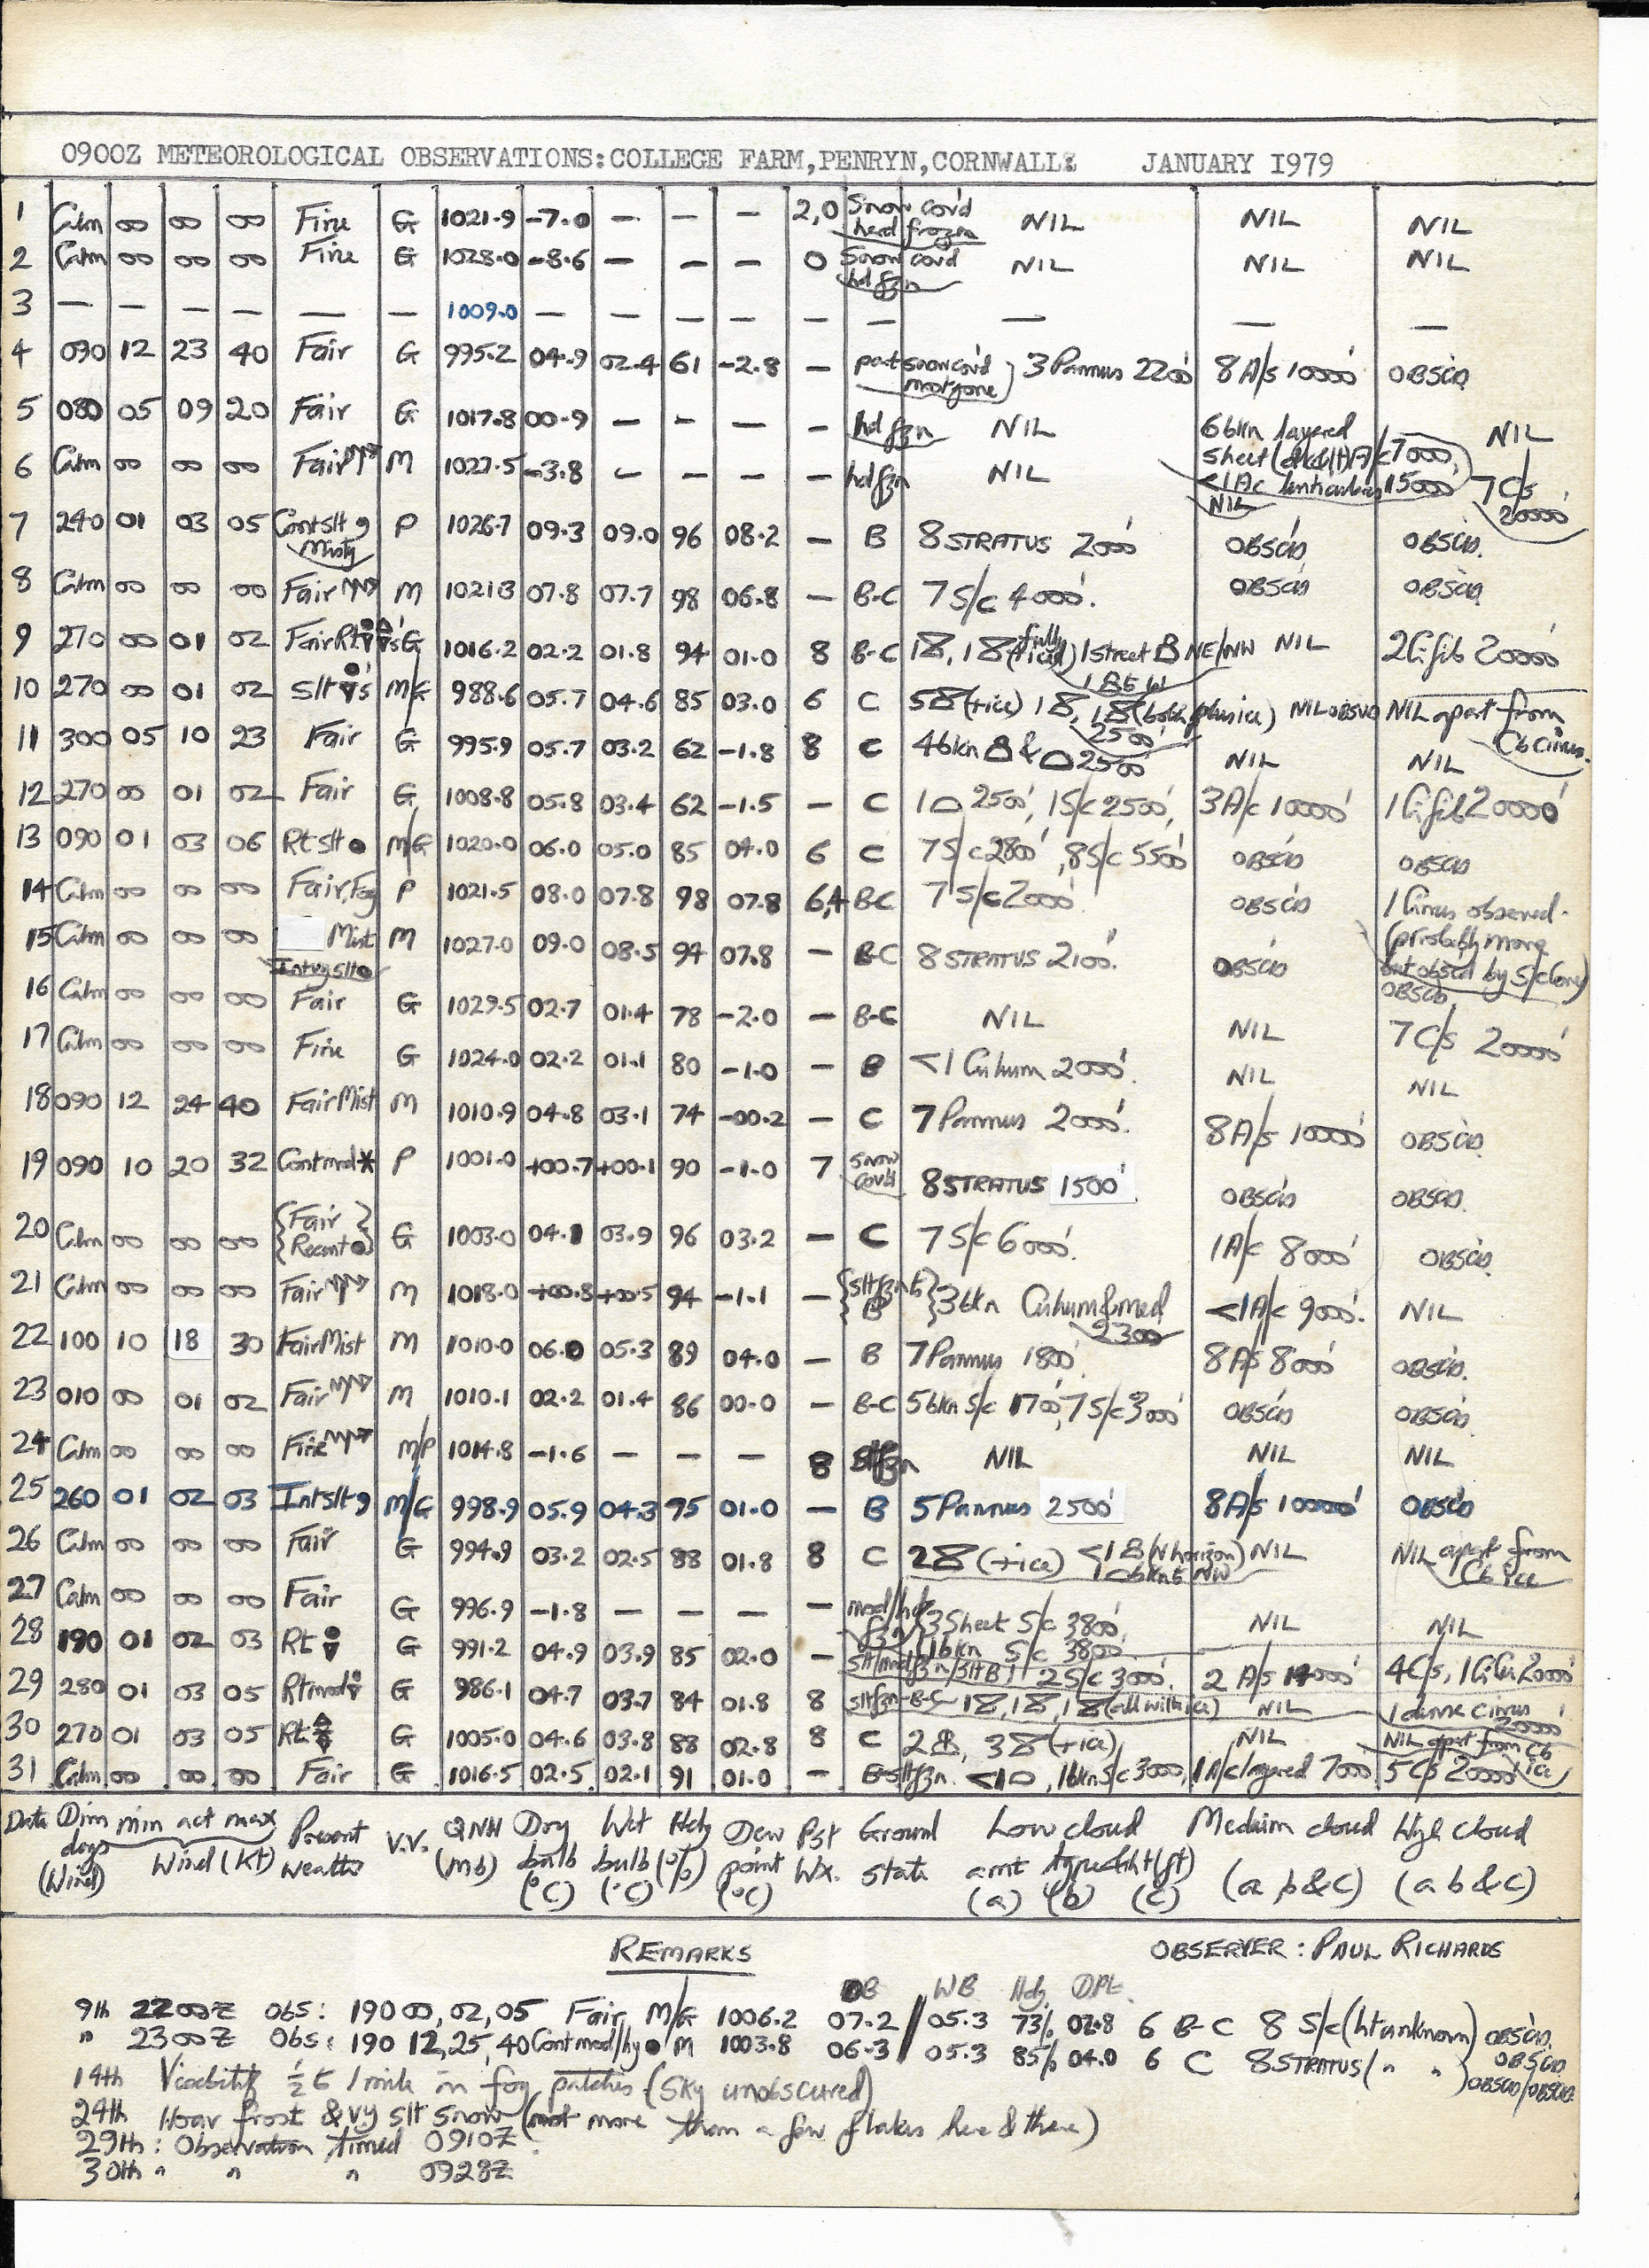 0900Z METEOROLOGICAL OBSERVATIONS:COLLEGE FARM,PENRYN,CORNWALL: JANUARY I979
1 Calm 00 00 00 Fine G 1021.9 -7.0 — — — 2,0 Snow cov'd hard frozen NIL NIL NIL
2 Calm 00 00 00 Fine G 1028.0 -8.6 — — — 0 Snow cov'd hd fzn NIL NIL NIL
3 — — — — — — 1009.0 — — — — — — — — —
4 090 12 23 40 Fair G 995.2 04.9 02.4 61 -2.8 — part snow cov'd most gone } 3 Pannus 2200' 8 A/s 10000' OBSC'D
5 080 05 09 20 Fair G 1017.8 00.9 — — — — hd fzn NIL 6 bkn layered sheet A/c 7000, <1 Ac lenticularis 15000 NIL
6 Calm 00 00 00 Fair M 1027.5 -3.8 — — — — hd fzn NIL NIL 7 C/s 20000'
7 240 01 03 05 Cont slt 9 Misty P 1026.7 09.3 09.0 96 08.2 — B 8 STRATUS 2000' OBSC'D OBSC'D.
8 Calm 00 00 00 Fair M 1021.3 07.8 07.7 98 06.8 — B-C 7 S/c 4000'. OBSC'D OBSC'D
9 270 00 01 02 Fair Rt G 1016.2 02.2 01.8 94 01.0 8 B-C 1, 1 (fully iced) 1 street NE/NW 1 B to W NIL 2 Ci fib 20000'
10 270 00 01 02 Slt 's M/G 988.6 05.7 04.6 85 03.0 6 C 5 (+ice) 1, 1 (both plus ice) 2500' NIL OBSVD NIL apart from Cb Cirrus.
11 300 05 10 23 Fair G 995.9 05.7 03.2 62 -1.8 8 C 4 bkn & 2500' NIL NIL
12 270 00 01 02 Fair G 1008.8 05.8 03.4 62 -1.5 — C 1 2500', 1 S/c 2500', 3 A/c 10000' 1 Ci fib 20000'
13 090 01 03 06 Rt slt ● M/G 1020.0 06.0 05.0 85 04.0 6 C 7 S/c 2800', 8 S/c 5500' OBSC'D OBSC'D
14 Calm 00 00 00 Fair, Fog P 1021.5 08.0 07.8 98 07.8 6,4 B-C 7 S/c 2000' OBSC'D 1 Cirrus observed. (probably more but obscd by S/c lens)
15 Calm 00 00 00 Mist Intvg slt ● M 1027.0 09.0 08.5 94 07.8 — B-C 8 STRATUS 2100'. OBSC'D OBSC'D.
16 Calm 00 00 00 Fair G 1029.5 02.7 01.4 78 -2.0 — B-C NIL NIL 7 C/s 20000'
17 Calm 00 00 00 Fine G 1024.0 02.2 01.1 80 -1.0 — B <1 Cu hum 2000'. NIL NIL
18 090 12 24 40 Fair Mist M 1010.9 04.8 03.1 74 -00.2 — C 7 Pannus 2000'. 8 A/s 10000' OBSC'D
19 090 10 20 32 Cont mod * P 1001.0 +00.7 +00.1 90 -1.0 7 Snow cov'd 8 STRATUS 1500' OBSC'D OBSC'D.
20 Calm 00 00 00 {Fair Recent ●} G 1003.0 04.1 03.9 96 03.2 — C 7 S/c 6000'. 1 A/c 8000' OBSC'D.
21 Calm 00 00 00 Fair M 1018.0 +00.8 +00.5 94 -1.1 — {slt fzn to B} 3 bkn Cu hum & med 2300 <1 A/c 9000'. NIL
22 100 10 18 30 Fair Mist M 1010.0 06.0 05.3 89 04.0 — B 7 Pannus 1800' 8 A/s 8000' OBSC'D.
23 010 00 01 02 Fair M 1010.1 02.2 01.4 86 00.0 — B-C 5 bkn S/c 1700', 7 S/c 3000' OBSC'D OBSC'D
24 Calm 00 00 00 Fine M/P 1014.8 -1.6 — — — 8 Slt fzn NIL NIL NIL
25 260 01 02 03 Int slt 9 M/G 998.9 05.9 04.3 75 01.0 — B 5 Pannus 2500' 8 A/s 10000' OBSC'D
26 Calm 00 00 00 Fair G 994.9 03.2 02.5 88 01.8 8 C 2 (+ice) <1 (N horizon) 1 bkn to NW NIL NIL apart from Cb ice
27 Calm 00 00 00 Fair G 996.9 -1.8 — — — — mod/hd fzn 3 Sheet S/c 3800', 1 bkn S/c 3800' NIL NIL
28 190 01 02 03 Rt G 991.2 04.9 03.9 85 02.0 — slt/mod fzn/slt B 2 S/c 3000'. 2 A/s 14000' 4 C/s, 1 Ci 20000'
29 280 01 03 05 Rt mod G 986.1 04.7 03.7 84 01.8 8 slt fzn-B-C 1, 1, 1 (all with ice) NIL 1 dense cirrus 20000'
30 270 01 03 05 Rt G 1005.0 04.6 03.8 88 02.8 8 C 2, 3 (+ice) NIL NIL apart from Cb ice
31 Calm 00 00 00 Fair G 1016.5 02.5 02.1 91 01.0 — B-slt fzn. <1, 1 bkn S/c 3000, 1 A/c layered 7000 5 C/s 20000'
Date Dirn degs (Wind) min act max Wind (kt) Present weather V.V. QNH (mb) Dry bulb (°C) Wet bulb (°C) Hdy (%) Dew point (°C) Pst Wx. Ground state Low cloud amt type & ht (ft) (a) (b) (c) Medium cloud (a, b & c) High cloud (a b & c)
REMARKS OBSERVER : PAUL RICHARDS
DB WB Hdy DPt.
9th 2200Z obs: 190 00, 02, 05 Fair M/G 1006.2 07.2 // 05.3 73% 02.8 6 B-C 8 S/c (ht unknown) OBSC'D.
" 2300Z Obs: 190 12, 25, 40 Cont mod/hy ● M 1003.8 06.3 // 05.3 85% 04.0 6 C 8 STRATUS ( " " ) OBSC'D OBSC'D/OBSC'D
14th Visibility ½ to 1 mile in fog patches (sky unobscured)
24th Hoar frost & vy slt snow (not more than a few flakes here & there)
29th : Observation timed 0910Z.
30th " " " 0928Z